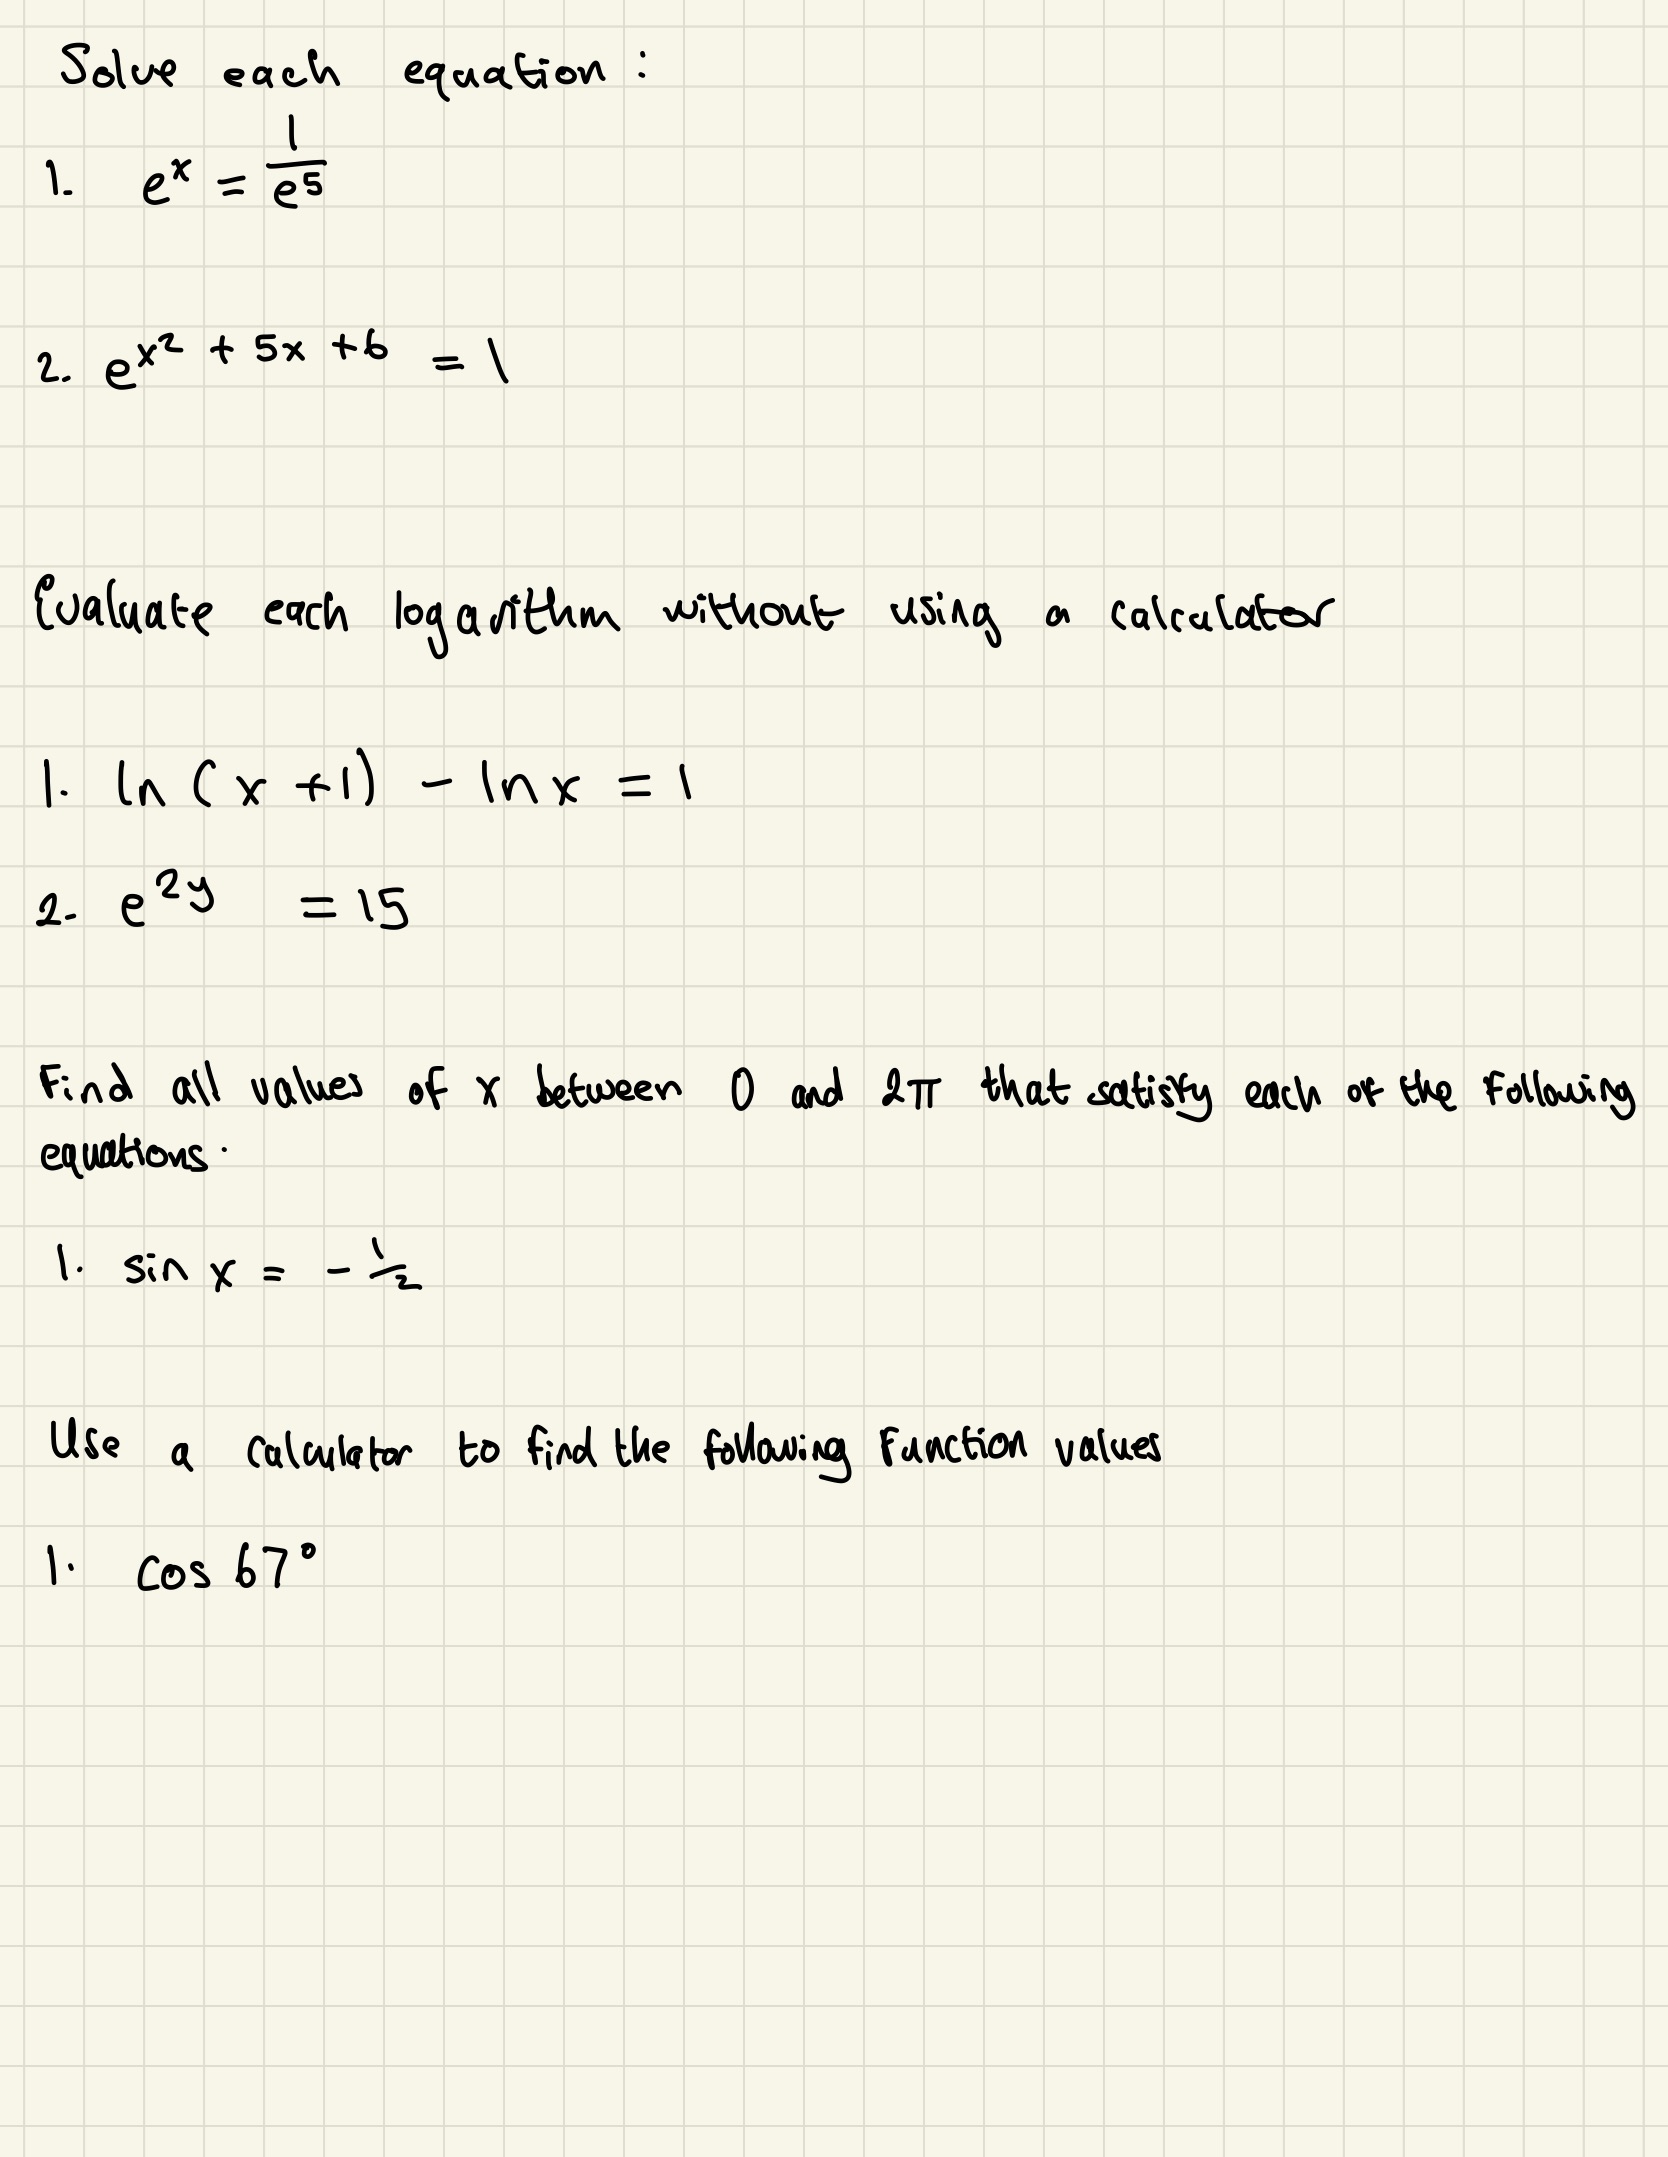 Solve each equation :
1. e^x = 1/e^5
2. e^(x^2 + 5x + 6) = 1
Evaluate each logarithm without using a calculator
1. ln (x + 1) - ln x = 1
2. e^(2y) = 15
Find all values of x between 0 and 2π that satisfy each of the following
equations.
1. sin x = - 1/2
Use a calculator to find the following function values
1. cos 67°